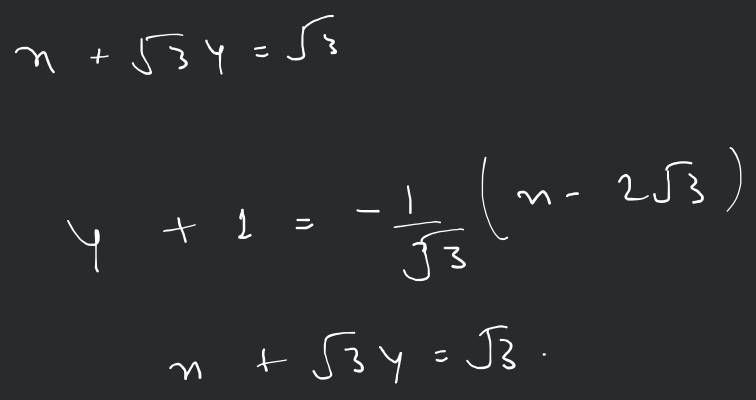 x + √3 y = √3
y + 1 = -1/√3 (x - 2√3)
x + √3 y = √3.